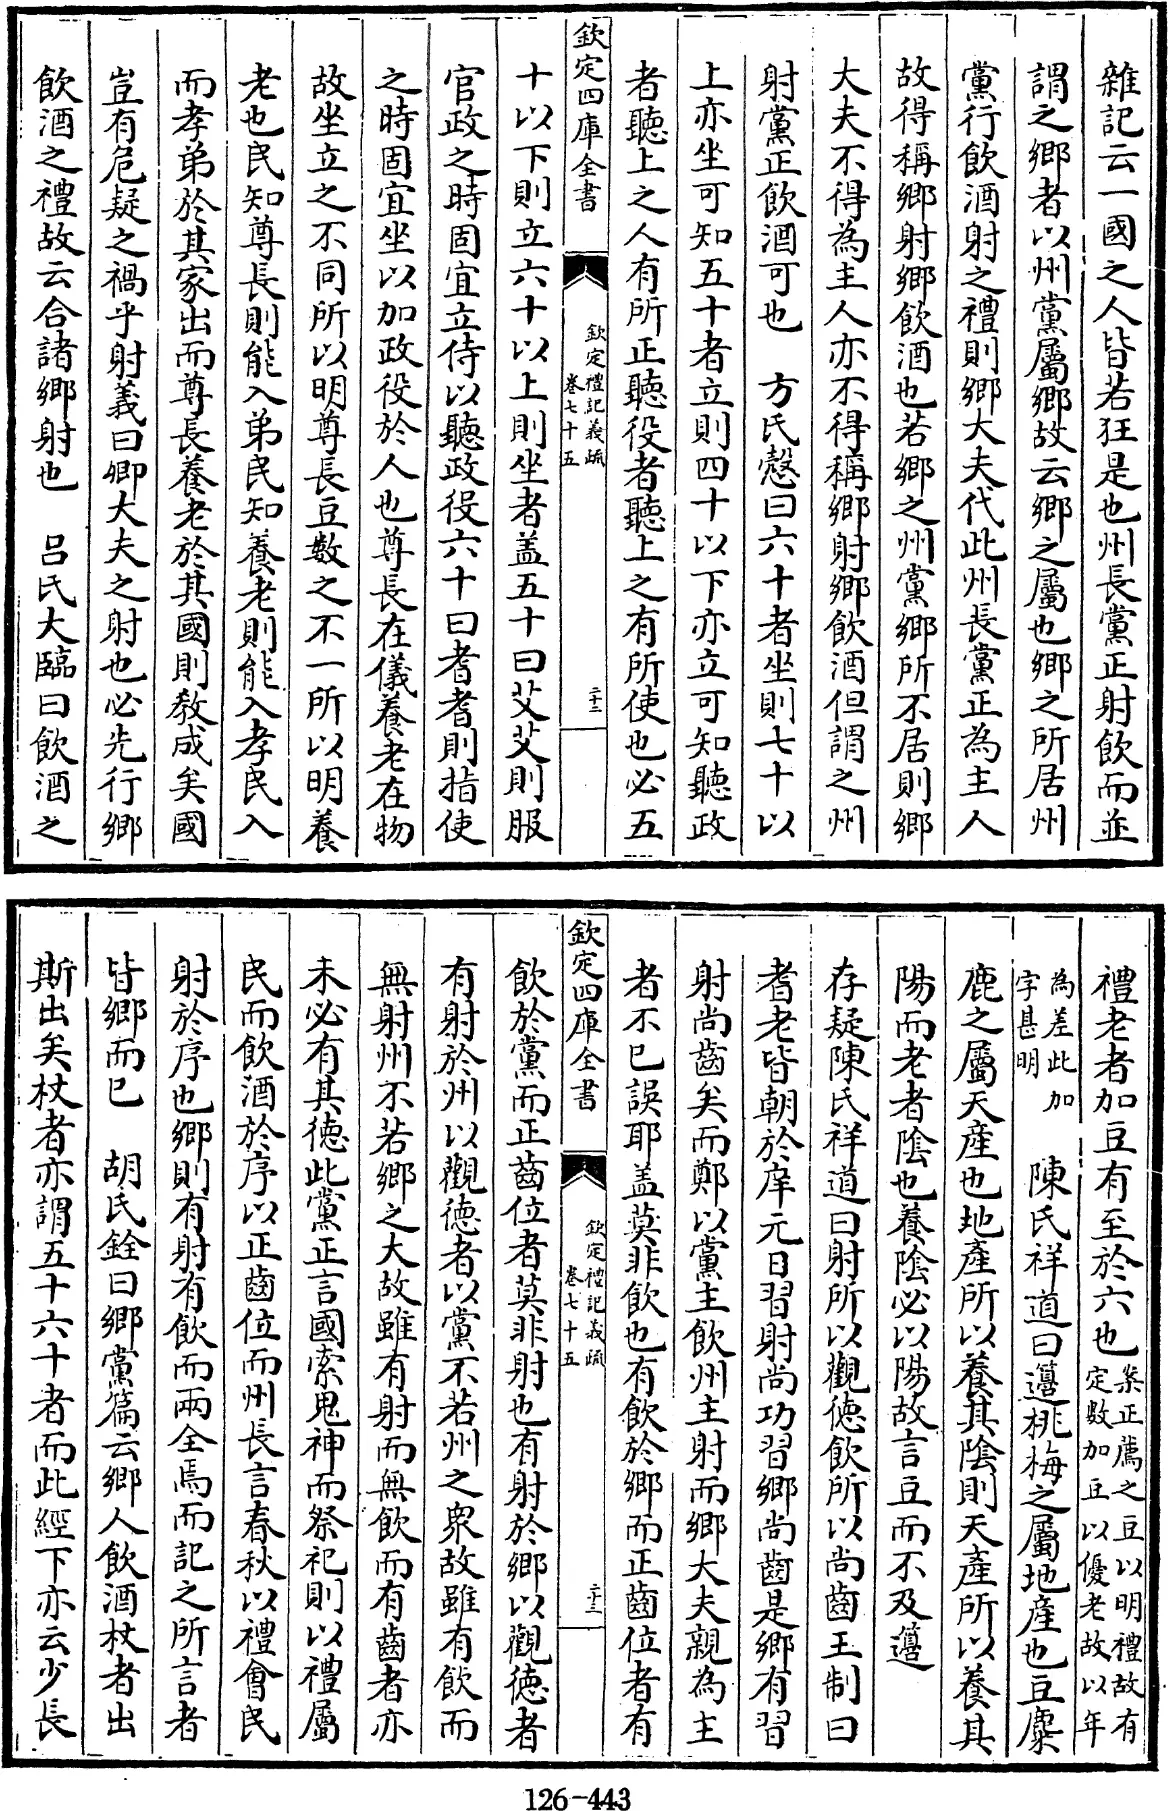 雜記云一國之人皆若狂是也州長黨正射飲而並
謂之鄉者以州黨屬鄉故云鄉之屬也鄉之所居州
黨行飲酒射之禮則鄉大夫代此州長黨正為主人
故得稱鄉射鄉飲酒也若鄉之州黨鄉所不居則鄉
大夫不得為主人亦不得稱鄉射鄉飲酒但謂之州
射黨正飲酒可也　方氏慤曰六十者坐則七十以
上亦坐可知五十者立則四十以下亦立可知聽政
者聽上之人有所正聽役者聽上之有所使也必五
欽定四庫全書
欽定禮記義疏
卷七十五
二十二
十以下則立六十以上則坐者盖五十曰艾艾則服
官政之時固宜立侍以聽政役六十曰耆耆則指使
之時固宜坐以加政役於人也尊長在儀養老在物
故坐立之不同所以明尊長豆數之不一所以明養
老也民知尊長則能入弟民知養老則能入孝民入
而孝弟於其家出而尊長養老於其國則教成矣國
豈有危疑之禍乎射義曰卿大夫之射也必先行鄉
飲酒之禮故云合諸鄉射也　呂氏大臨曰飲酒之
禮老者加豆有至於六也案正薦之豆以明禮故有
定數加豆以優老故以年
為差此加
字甚明　陳氏祥道曰籩桃梅之屬地產也豆麋
鹿之屬天產也地產所以養其陰則天產所以養其
陽而老者陰也養陰必以陽故言豆而不及籩
存疑陳氏祥道曰射所以觀徳飲所以尚齒王制曰
耆老皆朝於庠元日習射尚功習鄉尚齒是鄉有習
射尚齒矣而鄭以黨主飲州主射而鄉大夫親為主
者不已誤耶盖莫非飲也有飲於鄉而正齒位者有
欽定四庫全書
欽定禮記義疏
卷七十五
二十三
飲於黨而正齒位者莫非射也有射於鄉以觀徳者
有射於州以觀徳者以黨不若州之衆故雖有飲而
無射州不若鄉之大故雖有射而無飲而有齒者亦
未必有其徳此黨正言國索鬼神而祭祀則以禮屬
民而飲酒於序以正齒位而州長言春秋以禮會民
射於序也鄉則有射有飲而兩全焉而記之所言者
皆鄉而已　胡氏銓曰鄉黨篇云鄉人飲酒杖者出
斯出矣杖者亦謂五十六十者而此經下亦云少長
126-443